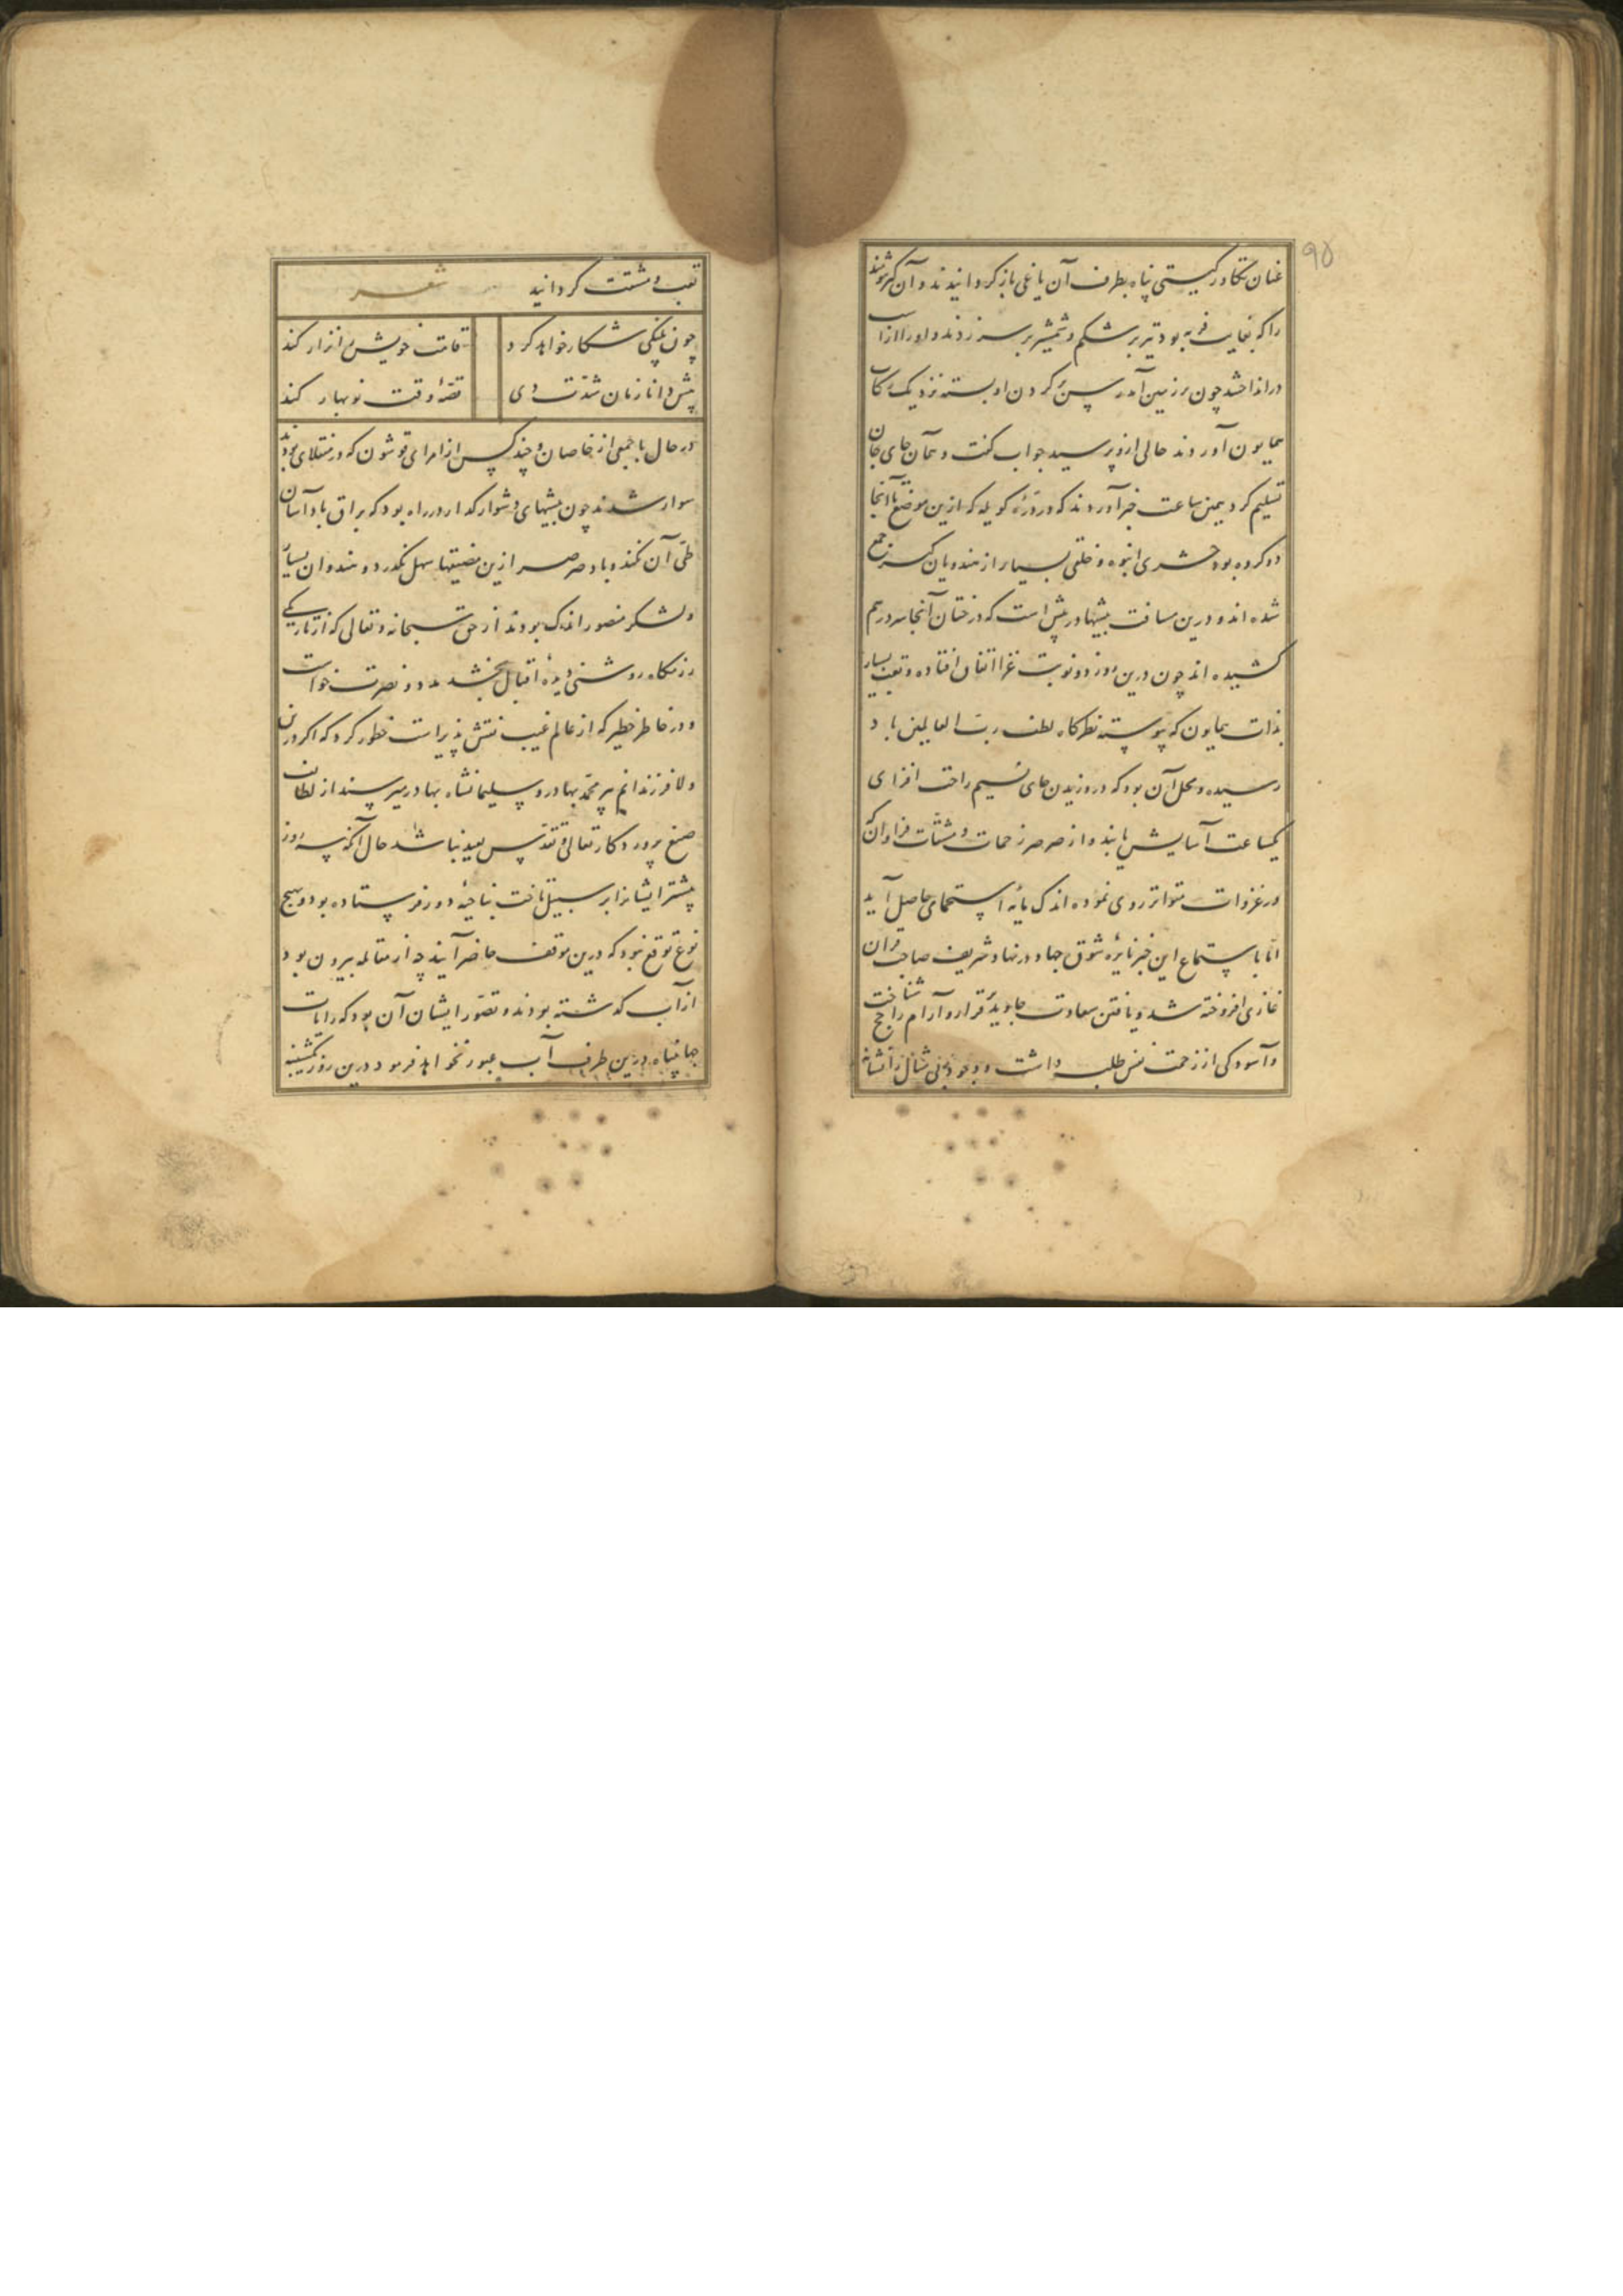 ۹۵
عنان تکاور گیتی پناه بطرف آن یاغی باز گردانیدند و آن گبر
را که بغایت فربه بود تیر بر شکم و شمشیر بر سر زدند و او را از اسب
در انداختند چون بر زمین آمد گردن او بسته نزدیک رکاب
همایون آوردند حالی ازو پرسید جواب گفت و همان جای جان
تسلیم کرد همین ساعت خبر آوردند که در درّهٔ کوپله که ازین موضع تا آنجا
دو کروه بود حشری انبوه و خلقی بسیار از هندویان گبر جمع
شده اند و درین مسافت بیشها در پیش است که درختان آنجا سر درهم
کشیده اند چون درین روز دو نوبت غزا اتفاق افتاده و تعب بسیار
بذات همایون که پیوسته نظرگاه لطف ربّ العالمین باد
رسیده و محل آن بود که در وزیدن جای نسیم راحت افزای
یکساعت آسایش یابند و از صرصر زحمات و مشقّات فراوان که
در غزوات متواتر روی نموده اندک مایه استجمامی حاصل آید
امّا باستماع این خبر نایرهٔ شوق جهاد در نهاد شریف صاحب قران
غازی افروخته شد و یافتن سعادت جاوید قرار و آرام شناخت
و آسودگی از زحمت نفس طلب داشت و وجود
تعب و مشقّت گردانید شعر
چون پلنگی شکار خواهد کرد قامت خویش را نزار کند
پیش دانا زمان شدّت دی وقت نوبهار کند
در حال با جمعی از خاصان و چند کس از امرای قوشون که در منقلای بودند
سوار شدند چون بیشهای دشوار گذار در راه بود که براق باد آسان
طی آن نکند و باد صرصر ازین مضیقها سهل نگذرد و هندوان بسیار
و لشکر منصور اندک بودند از حق سبحانه و تعالی که از تاریکی
رزمگاه روشنی دیدهٔ اقبال بخشد مدد و نصرت خواست
و در خاطر خطیر که از عالم غیب نقش پذیر است خطور کرد که اگر درین
ولا فرزندانم پیر محمّد بهادر و سلیمانشاه بهادر میرسند از لطایف
صنع پروردگار تعالی و تقدّس بعید نباشد حال آنکه سه روز
پیشتر ایشانرا بر سبیل تاخت بناحیهٔ دور فرستاده بود و هیچ
نوع توقع نبود که درین موقف حاضر آیند چه از مقاله بیرون بود
از آب گذشته بودند و تصوّر ایشان آن بود که رایات
جهانپناه درین طرف آب عبور نخواهد فرمود درین روز یکشنبه